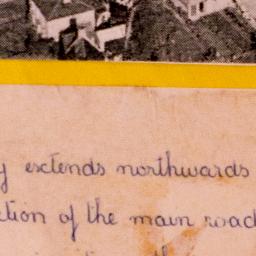 y extends northwards
ction of the main road